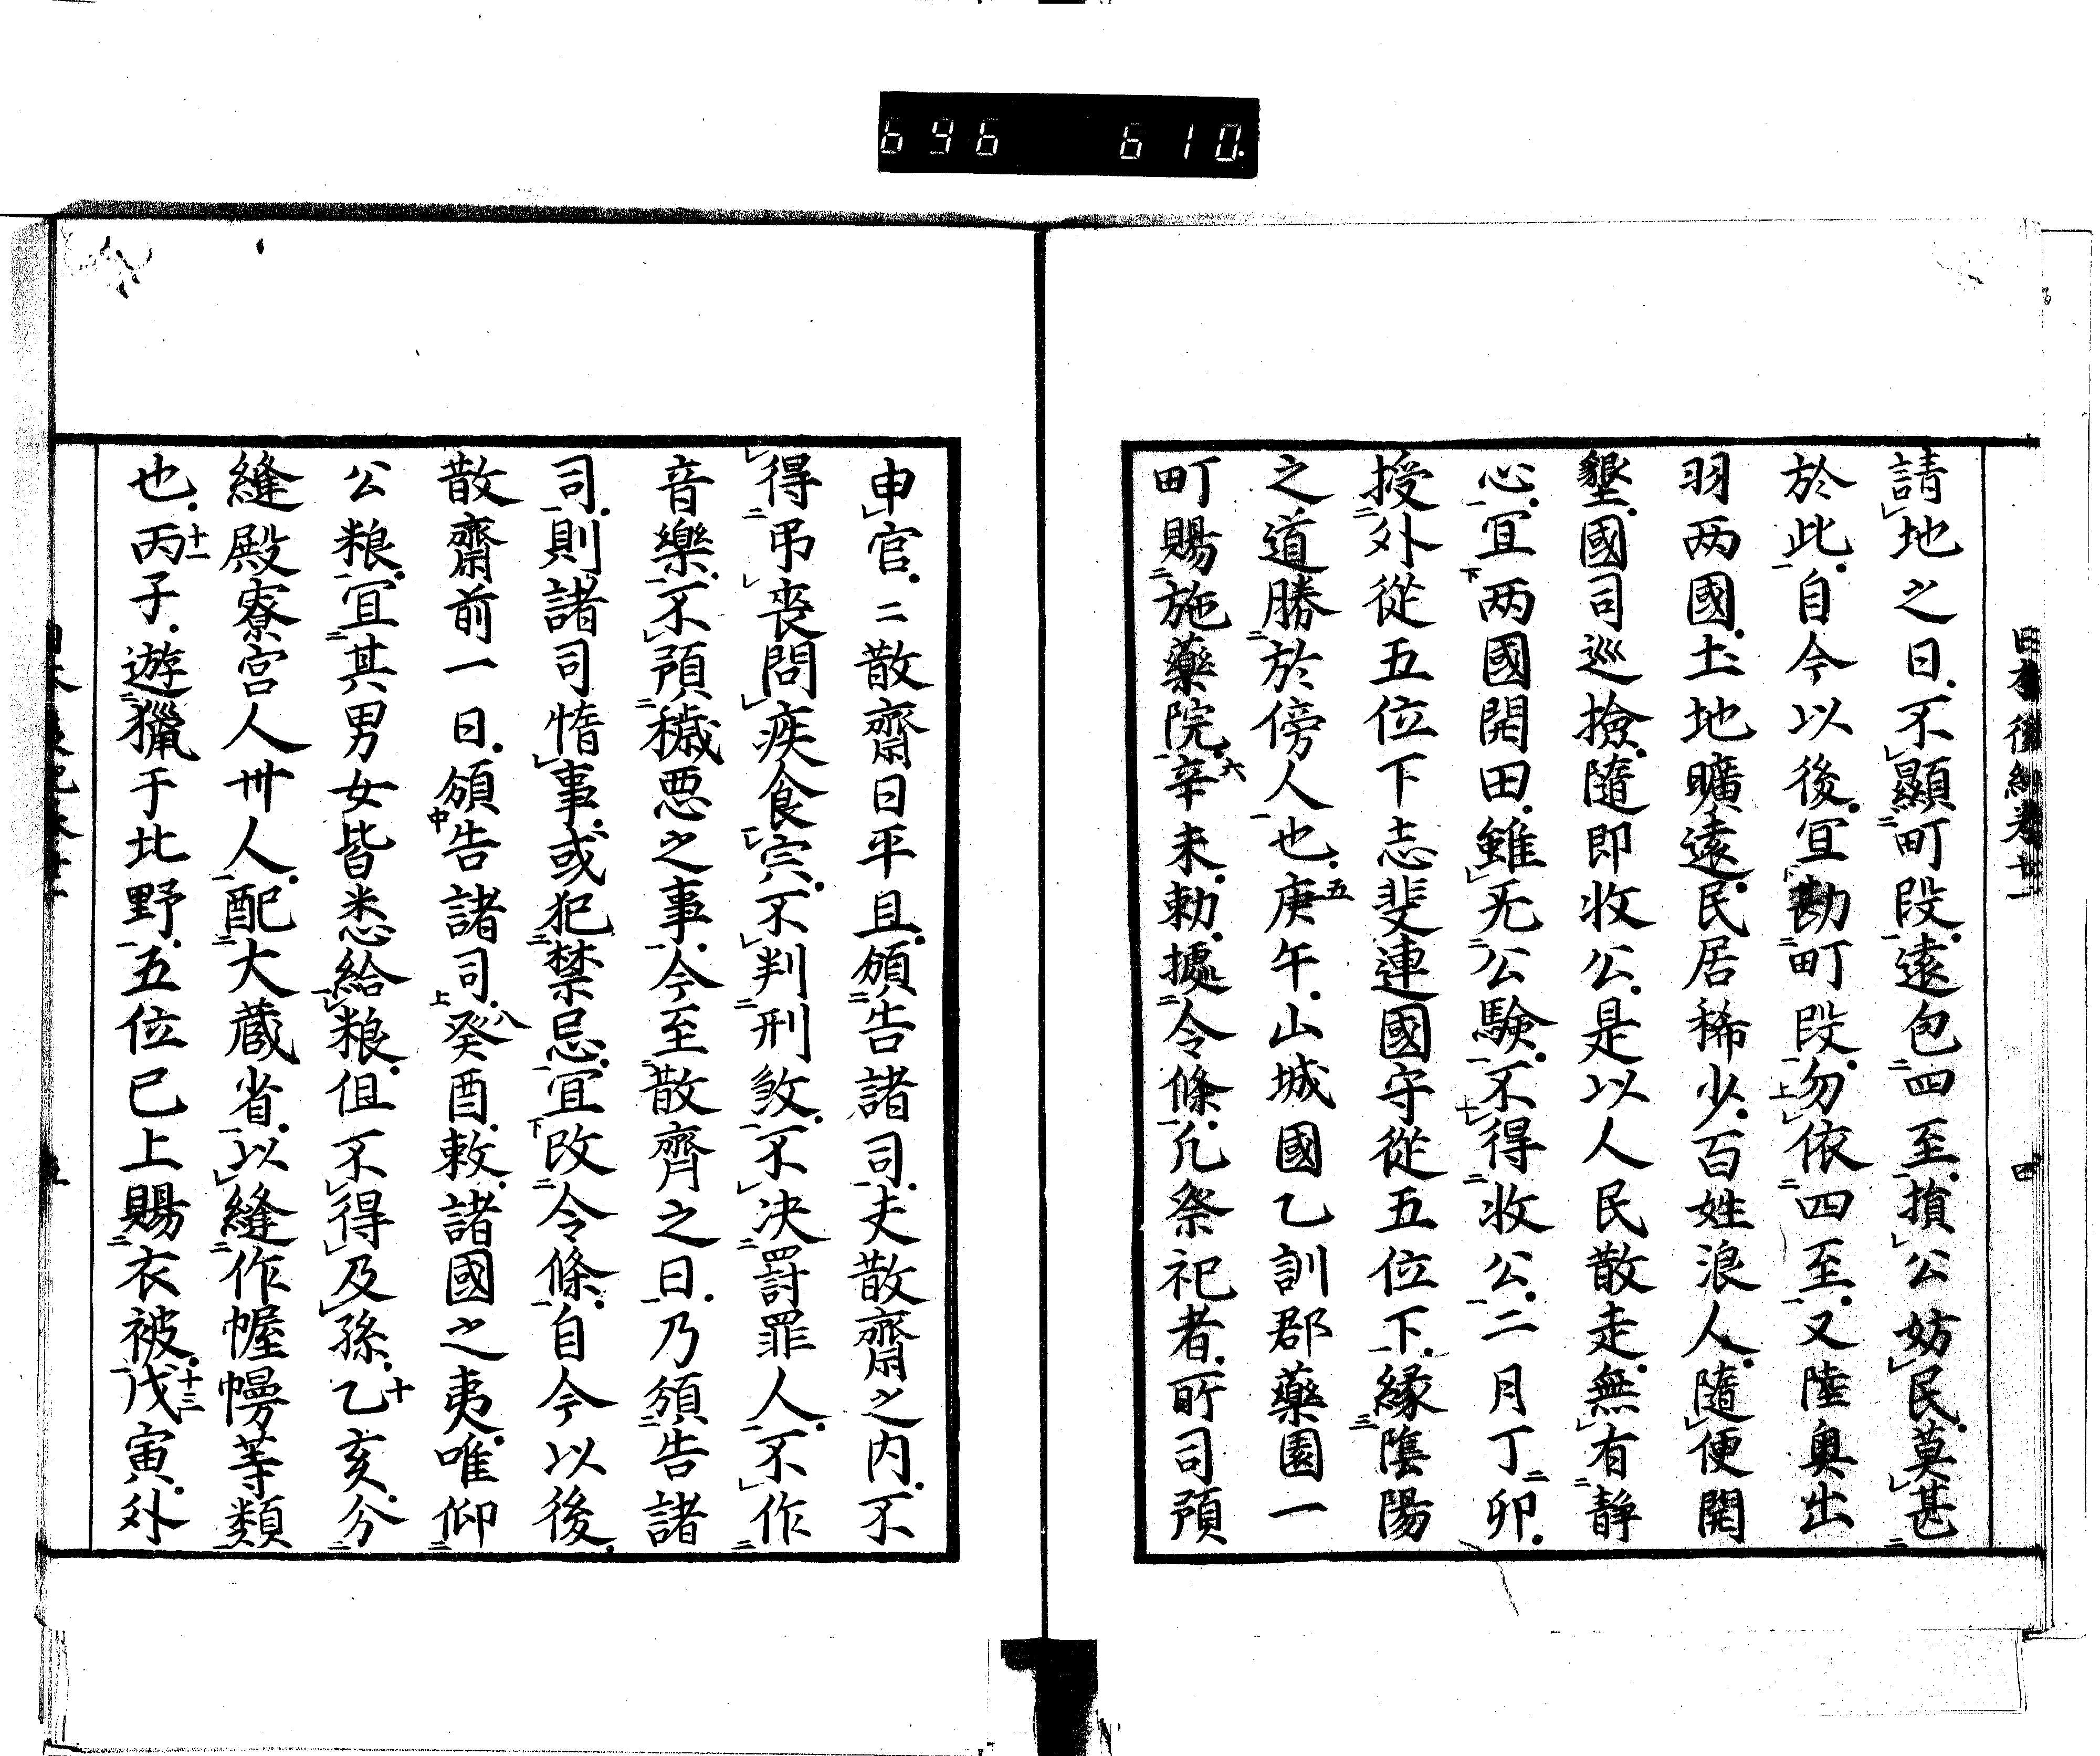 696 610
日本後紀卷廿一 四
請地之日。不顯町段。遠包四至。損公妨民。莫甚
於此。自今以後。宜勘町段。勿依四至。又陸奥出
羽两國。土地曠遠。民居稀少。百姓浪人。隨便開
墾。國司巡撿。隨即收公。是以人民散走。無有静
心。宜两國開田。雖无公驗。不得收公。二月丁卯。
授外從五位下志斐連國守從五位下。縁陰陽
之道勝於傍人也。庚午。山城國乙訓郡藥園一
町賜施藥院。辛未。勅。據令條。凢祭祀者。所司預
申官。散齋日平旦。頒告諸司。夫散齋之内。不
得弔喪問疾食宍。不判刑煞。不决罸罪人。不作
音樂。不預穢悪之事。今至散齊之日。乃頒告諸
司。則諸司惰事。或犯禁忌。宜改令條。自今以後。
散齋前一日。頒告諸司。癸酉。敕。諸國之夷。唯仰
公粮。宜其男女皆悉給粮。但不得及孫。乙亥。分
縫殿寮宮人卅人。配大蔵省。以縫作幄幔等類
也。丙子。遊獵于北野。五位已上賜衣被。戊寅。外